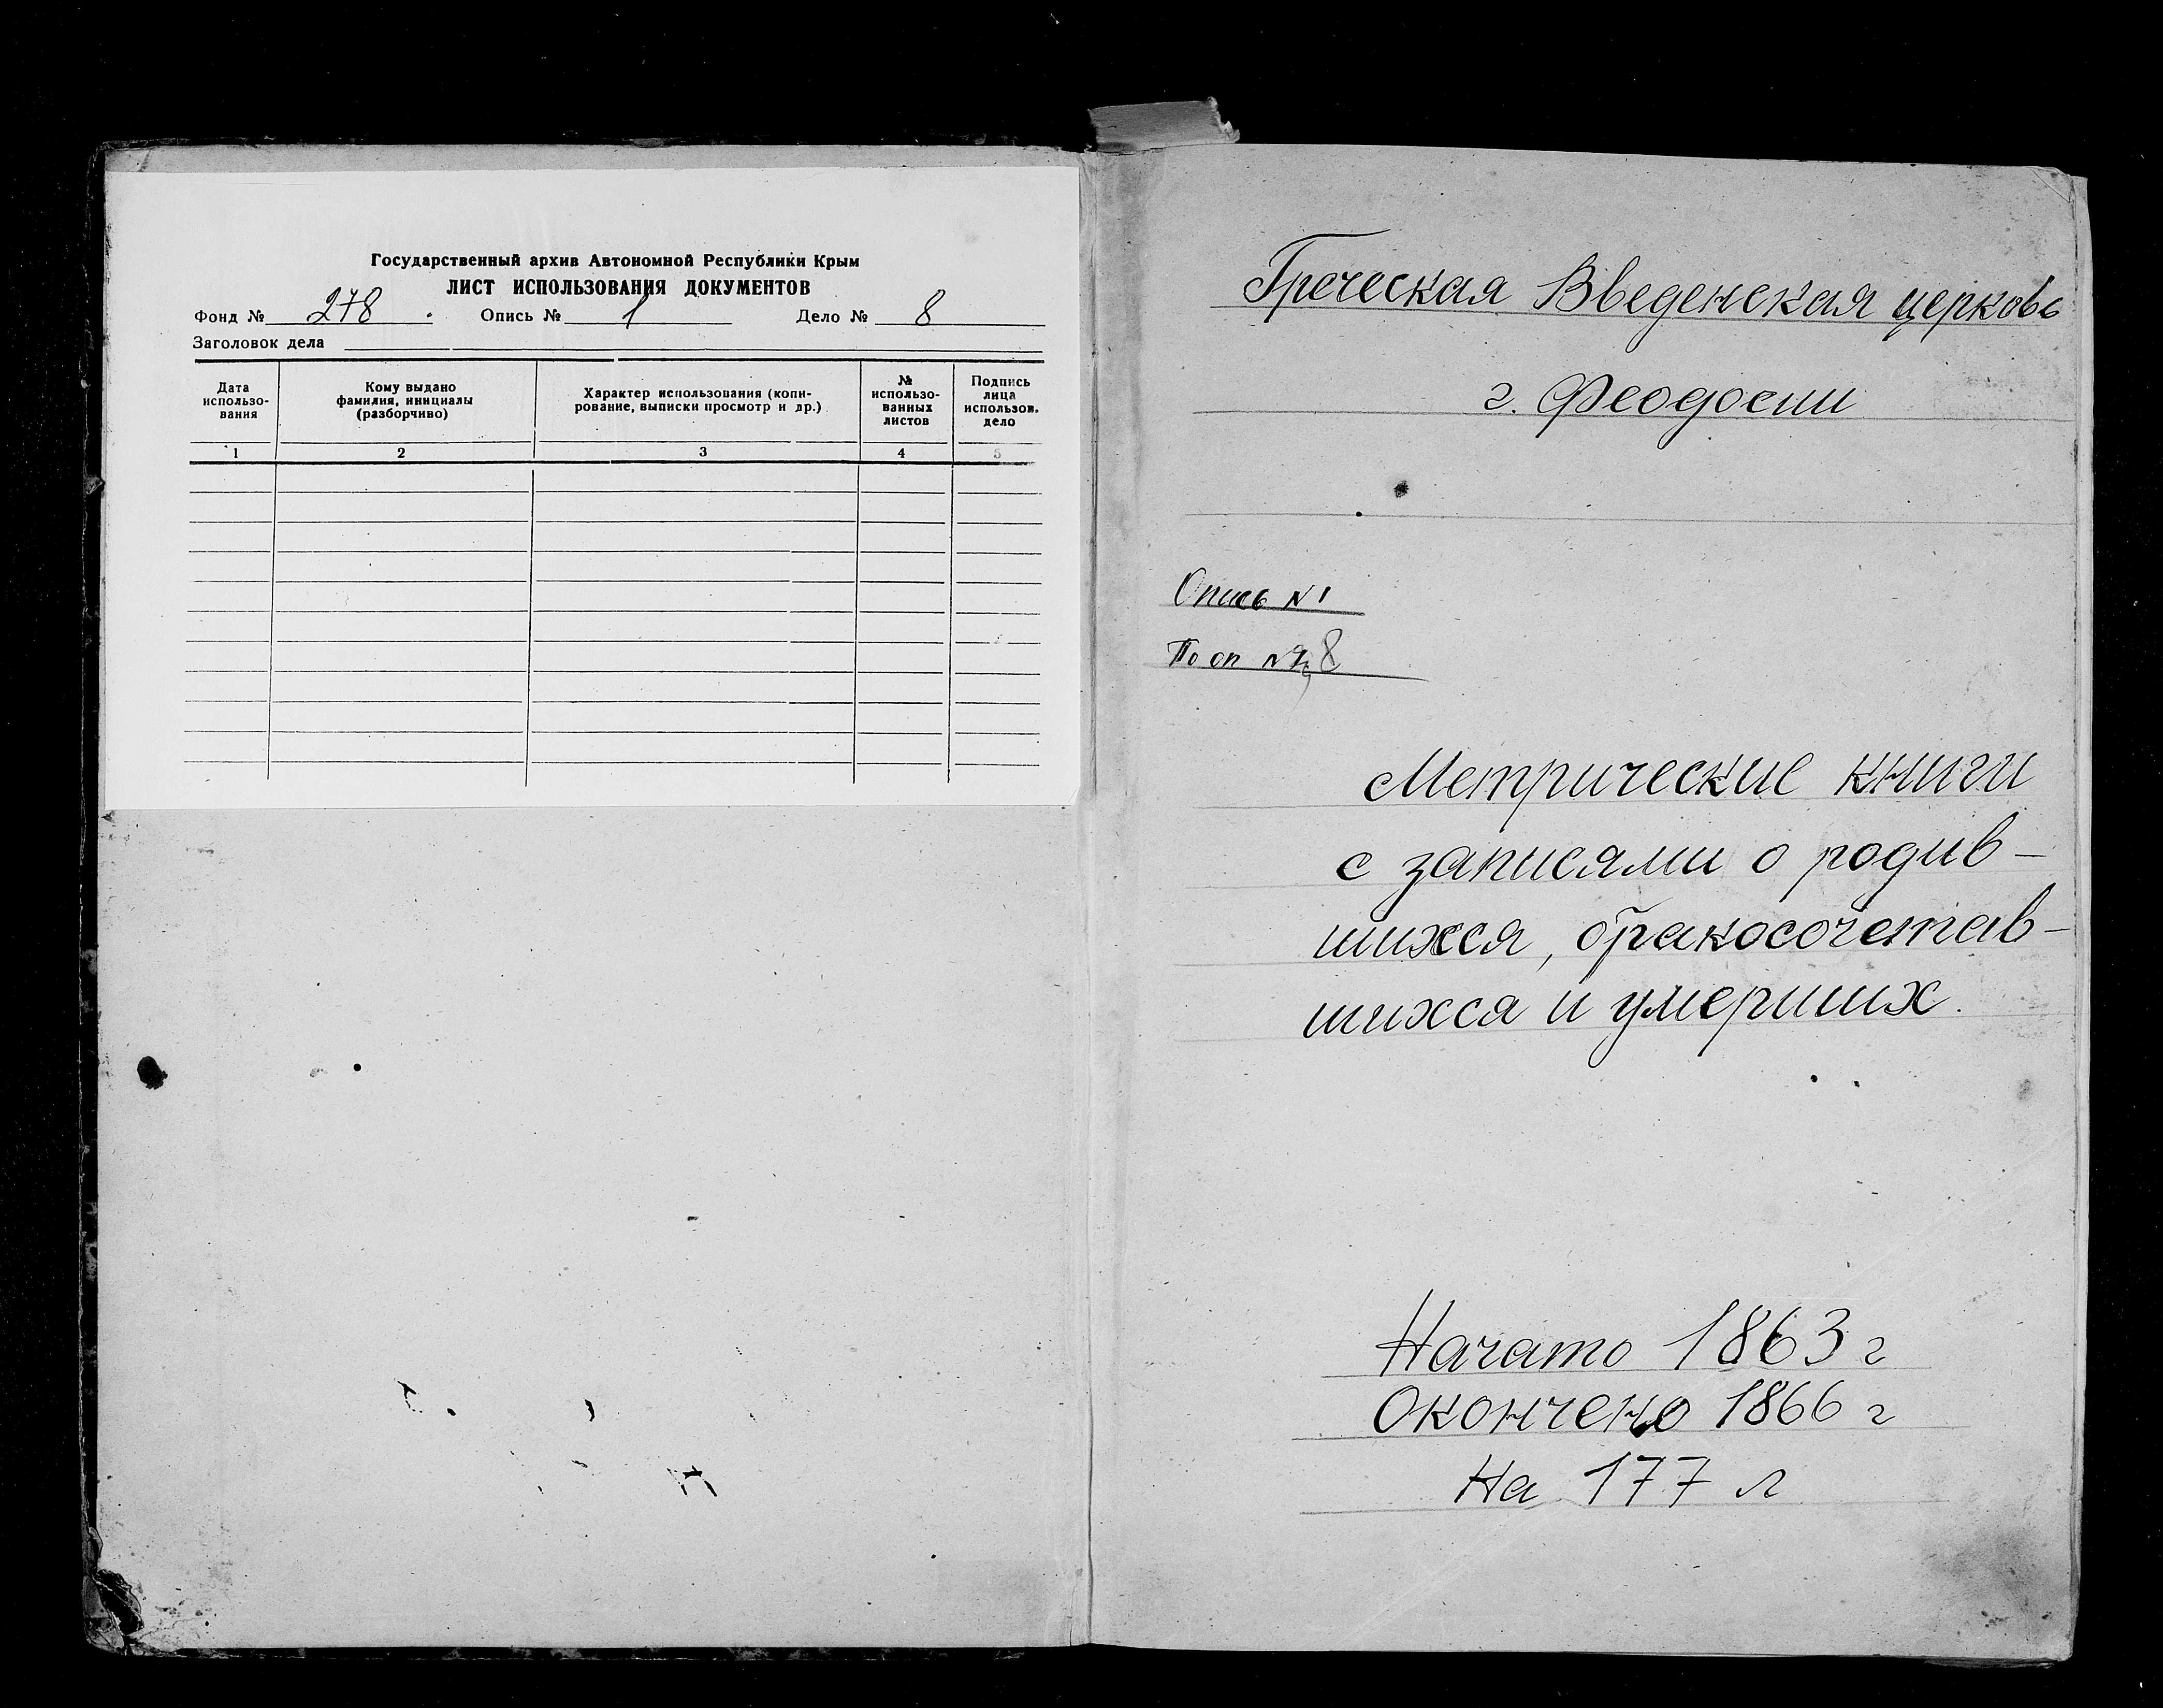 Государственный архив Автономной Республики Крым
ЛИСТ ИСПОЛЬЗОВАНИЯ ДОКУМЕНТОВ
Фонд № 278. Опись № 1 Дело № 8
Заголовок дела
Дата использо-вания
Кому выдано фамилия, инициалы (разборчиво)
Характер использования (копи-рование, выписки просмотр и др.)
№ использо-ванных листов
Подпись лица использов. дело
1 2 3 4 5
Греческая Введенская церковь
г. Феодосии
Опись №1
По оп № 8
Метрические книги
с записями о родив-
шихся, бракосочетав-
шихся и умерших.
Начато 1863 г
Окончено 1866 г
На 177 л